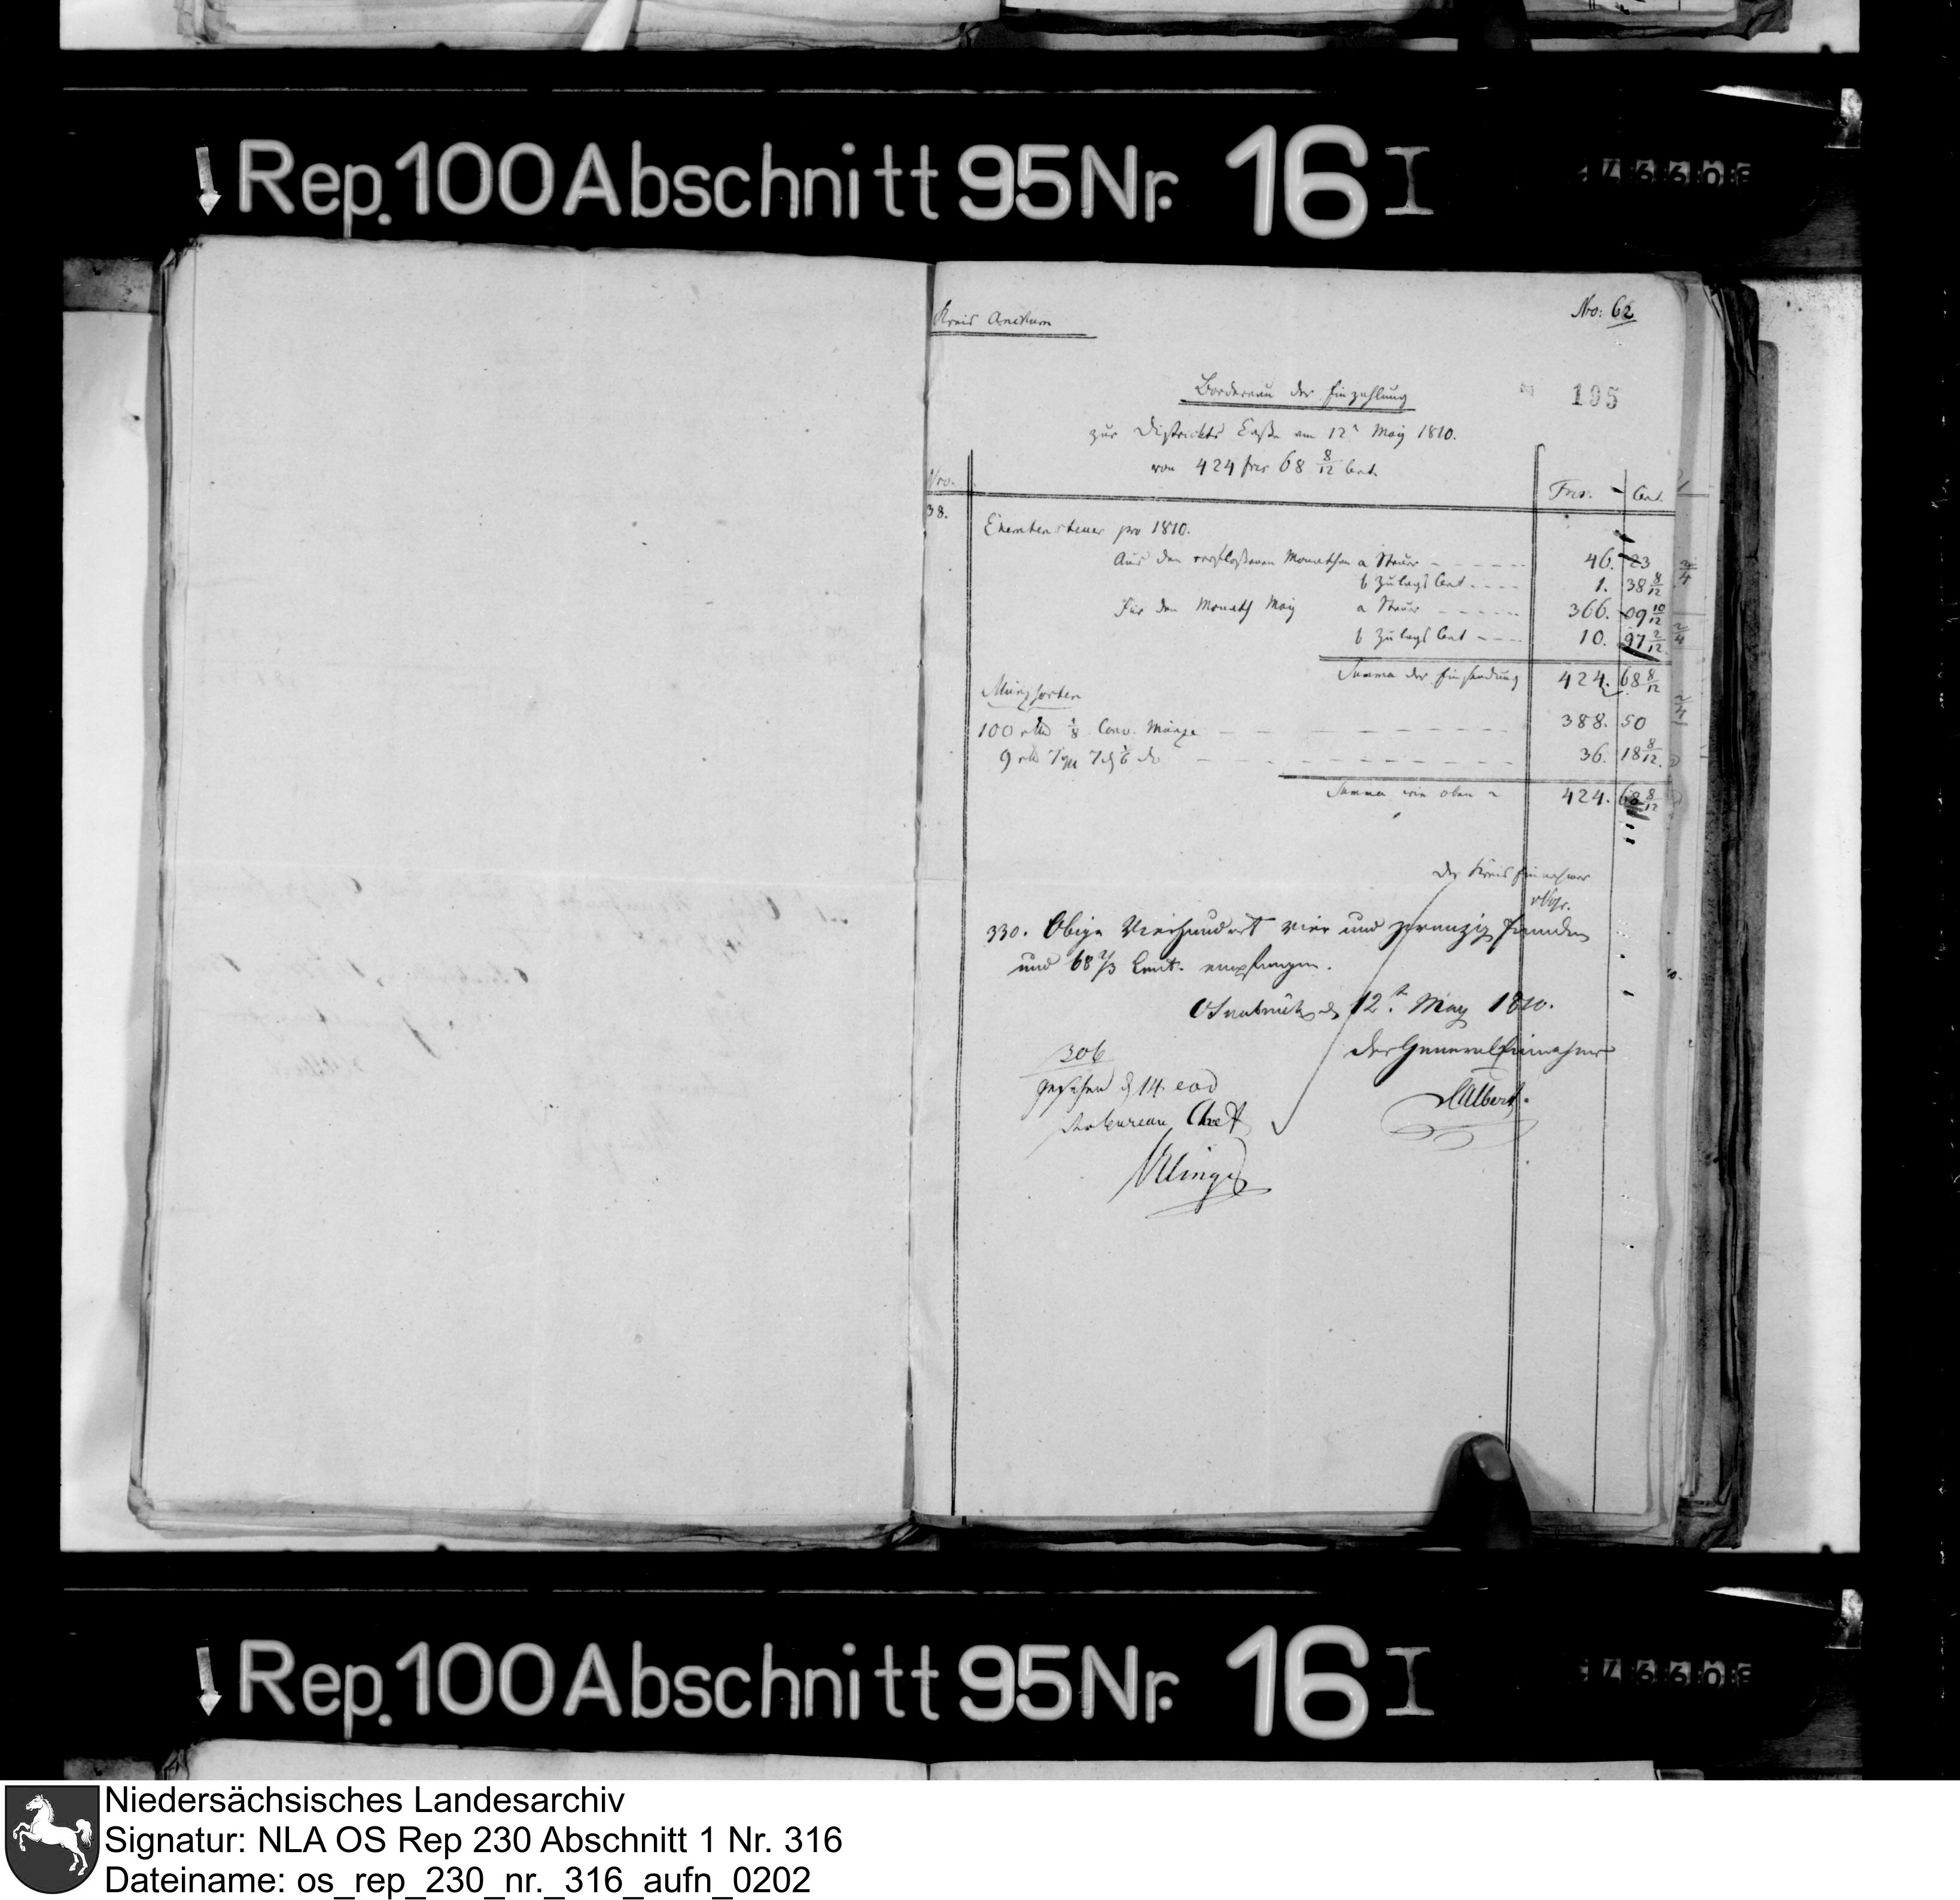 Rep. 100 Abschnitt 95 Nr. 16 I
Kreis Anckum
Nro: 62
Bordereau der Einzahlung
195
zur Districkts Casse am 12t May 1810.
von 424 frcs 68 8/12 Cent.
Nro.
Frcs. Cent.
38.
Exemtensteuer pro 1810.
Aus den verfloßenen Monathen a Steuer 46. 23
b Zulags Cent. 1. 38 8/12
Für den Monath May a Steuer 366. 09 10/12
b Zulags Cent 10. 97 2/12
Summa der Einsendung 424. 68 8/12
Münzsorten
100 rthlr 1/8 Conv. Münze 388. 50
36. 18 8/12
Summa wie oben 424. 68 8/12
Der Kreis Einnehmer
330. Obige Vierhundert vier und zwanzig Franken
und 68 2/3 Cent. empfangen.
Osnabrück d 12t May 1810.
306
der General Einnehmer
gesehen d 14. eod
Albert.
bureau Chef
Klinge
Rep. 100 Abschnitt 95 Nr. 16 I
Niedersächsisches Landesarchiv
Signatur: NLA OS Rep 230 Abschnitt 1 Nr. 316
Dateiname: os_rep_230_nr._316_aufn_0202